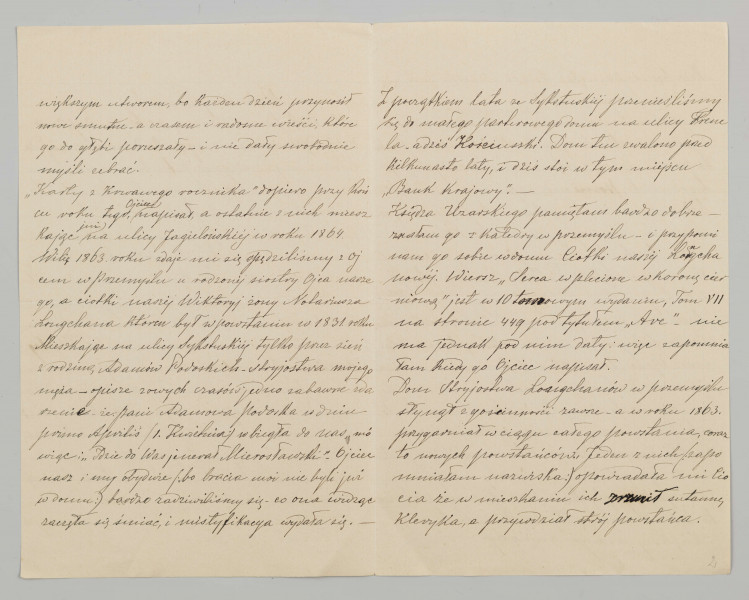 większym utworem, bo każden dzień przynosił
nowe smutne - a czasem i radosne wieści, które
go do głębi poruszały - i nie dały swobodnie
myśli zebrać.
„Karty z krwawego rocznika” dopiero przy koń
cu roku tego, Ojciec napisał, a ostatnie z nich miesz
kając już na ulicy Jagielońskiej w roku 1864
Wilię 1863 roku zdaje mi się spędziliśmy z Oj
cem w Przemyślu u rodzonej siostry Ojca nasze
go, a ciotki naszej Wiktoryi żony Notariusza
Łozigchana który był w powstaniu w 1831 roku
Mieszkając na ulicy Sykstuskiej tylko przez sień
z rodziną Adamów Podoskich - Stryjostwa mojego
męża - opiszę z owych czasów jedno zabawne zda
rzenie - że Pani Adamowa Podoska w dzień
primo Aprilis /1. Kwietnia/ wbiegła do nas, mó
wiąc: „Idzie do Was jenerał Mierosławski”. Ojciec
nasz i my obydwie /:bo bracia moi nie byli już
w domu:/ bardzo zadziwiliśmy się - co ona widząc
zaczęła się śmiać, i mistyfikacya wydała się. —
Z początkiem lata ze Sykstuskiej przenieśliśmy
się do małego parterowego domu na ulicy
a dziś Kościuszki. Dom ten zwalono przed
kilkunastu laty, i dziś stoi w tym miejscu
„Bank Krajowy”. —
Księdza Urarskiego pamiętam bardzo dobrze -
z katedry w Przemyślu - i przypomi
nam go sobie w domu Ciotki naszej
nowej. Wiersz „Serca wplecione w koronę cier
niową” jest w 10 tomowym wydaniu, Tom VII
na stronie 449 pod tytułem „Ave” - nie
ma jednak pod nim daty: więc zapomnia
łam kiedy go Ojciec napisał.
Dom Stryjostwa Łozigchanów w Przemyślu
słynął z gościnności zawsze - a w roku 1863.
przygarniał w ciągu całego powstania, coraz
to nowych powstańców. Jeden z nich /:zapo
mniałam nazwiska:/ opowiadała mi Cio
cia że w mieszkaniu ich zrzucił sutannę
kleryka, a przywdział strój powstańca.
2